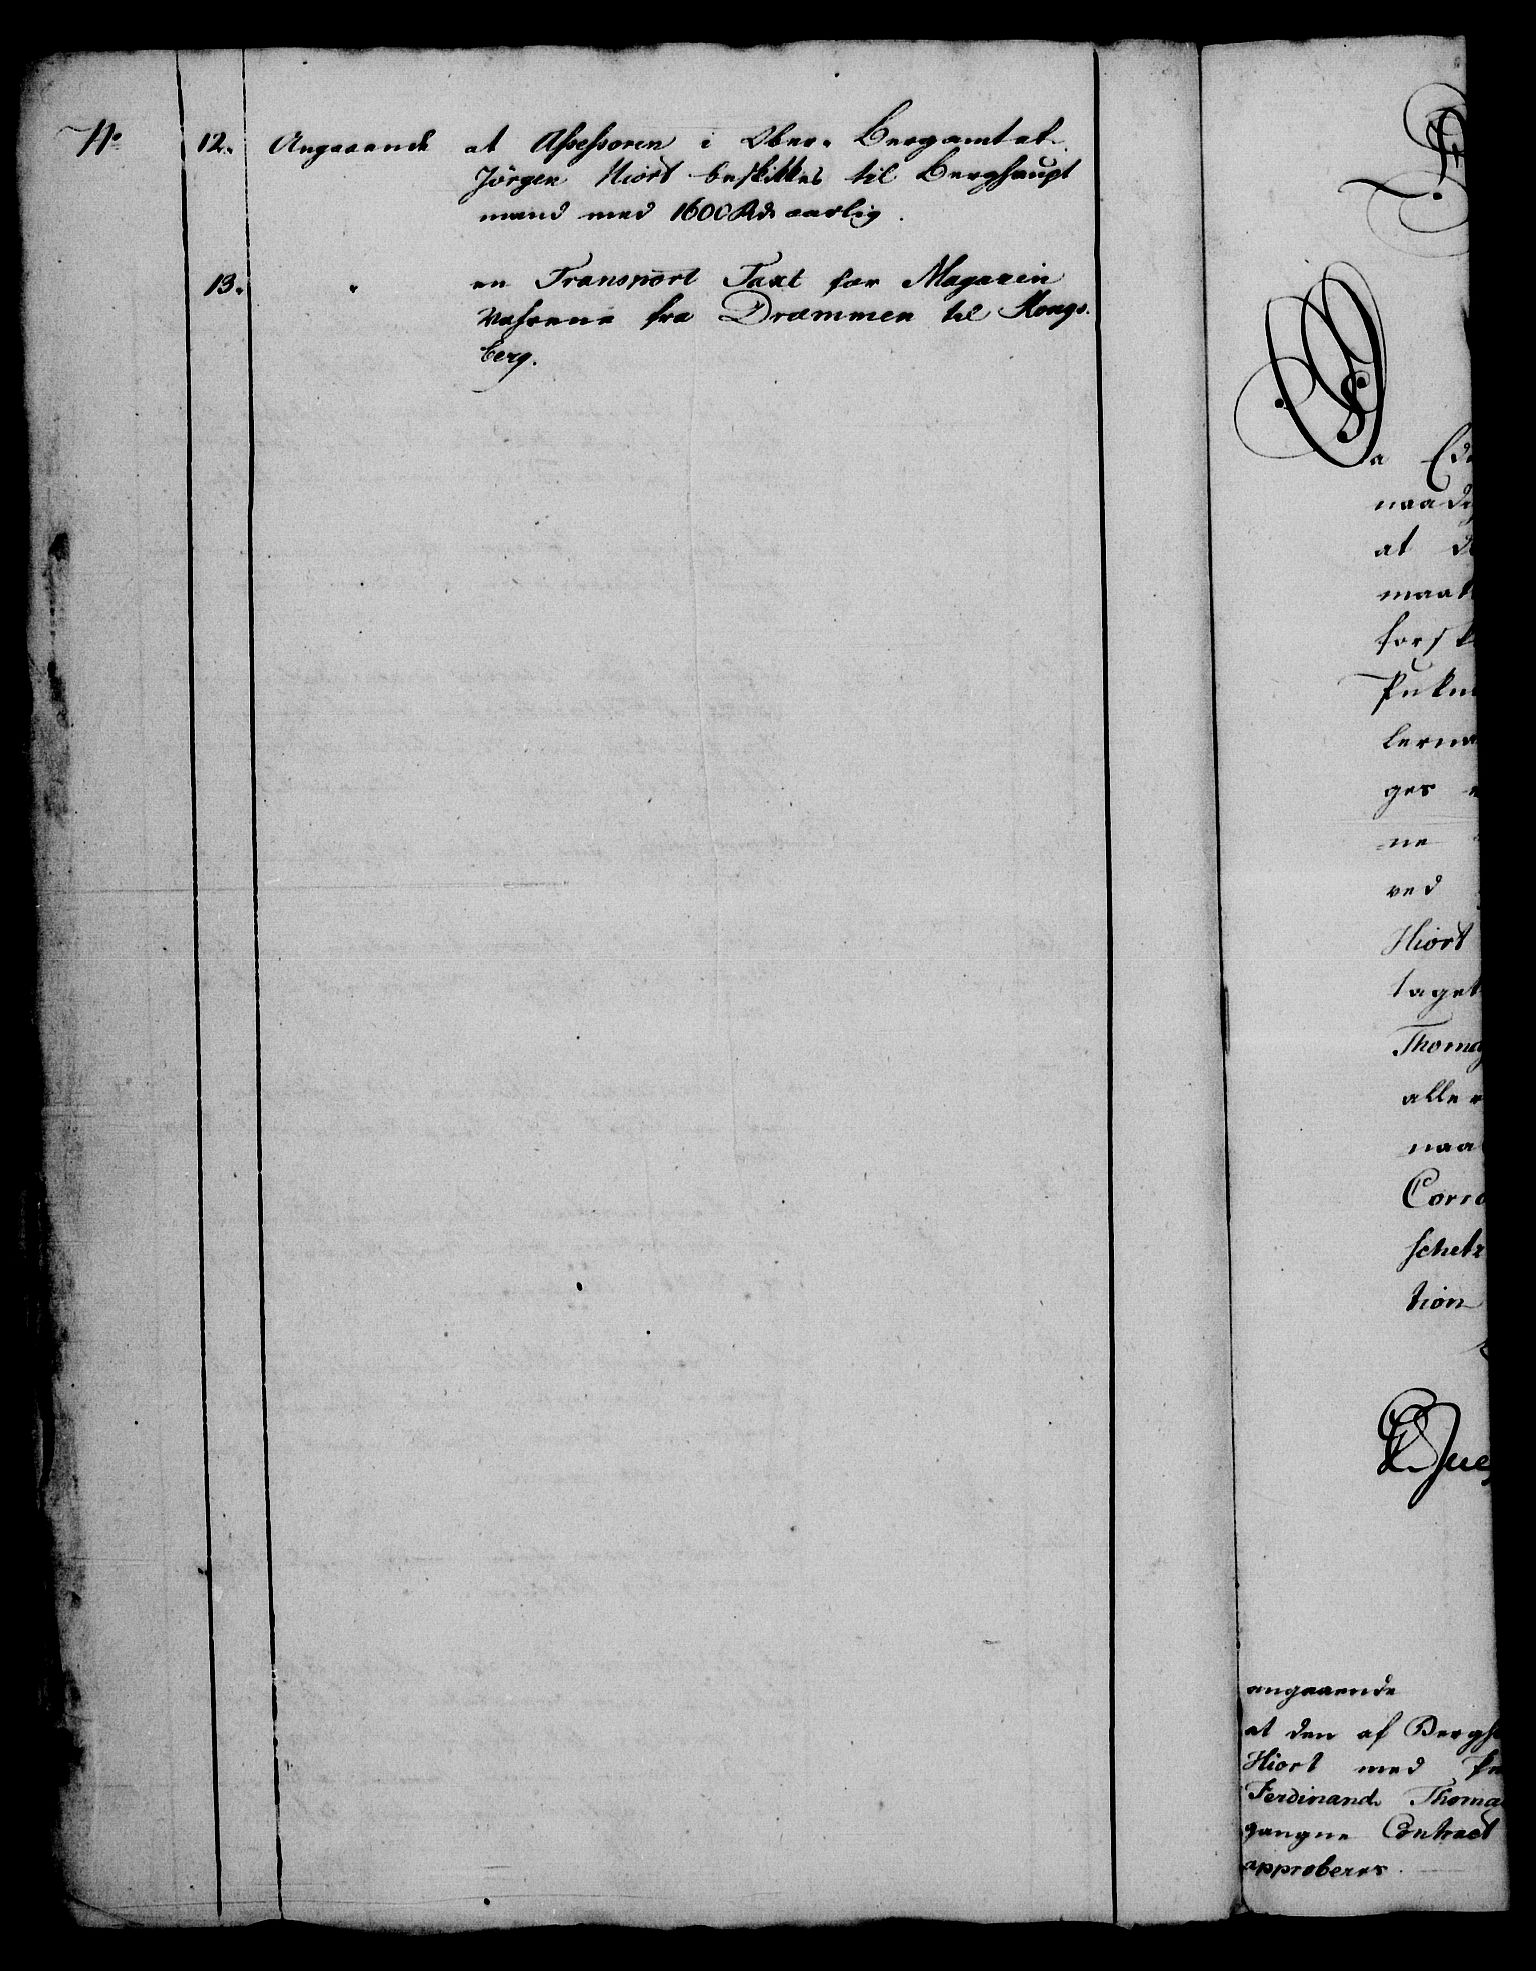 No 12. Angaaende at Assessoren i Ober-Bergamtet
Jörgen Hiort beskikkes til Berghaupt
mand med 1600 Rd. aarlig.
13. " en Transport Taxt for Magazin
Vahrene fra Drammen til Kongs-
berg.
naadi
at
maat
forsk
Pukn
lerne
ges
=ne
ved
Hiort
taget
Thoma
aller
naa
Corro
schetz
tion
angaaende
at den af Bergh
Hiort med
Ferdinand Thoma
gangne Contract
approberes.